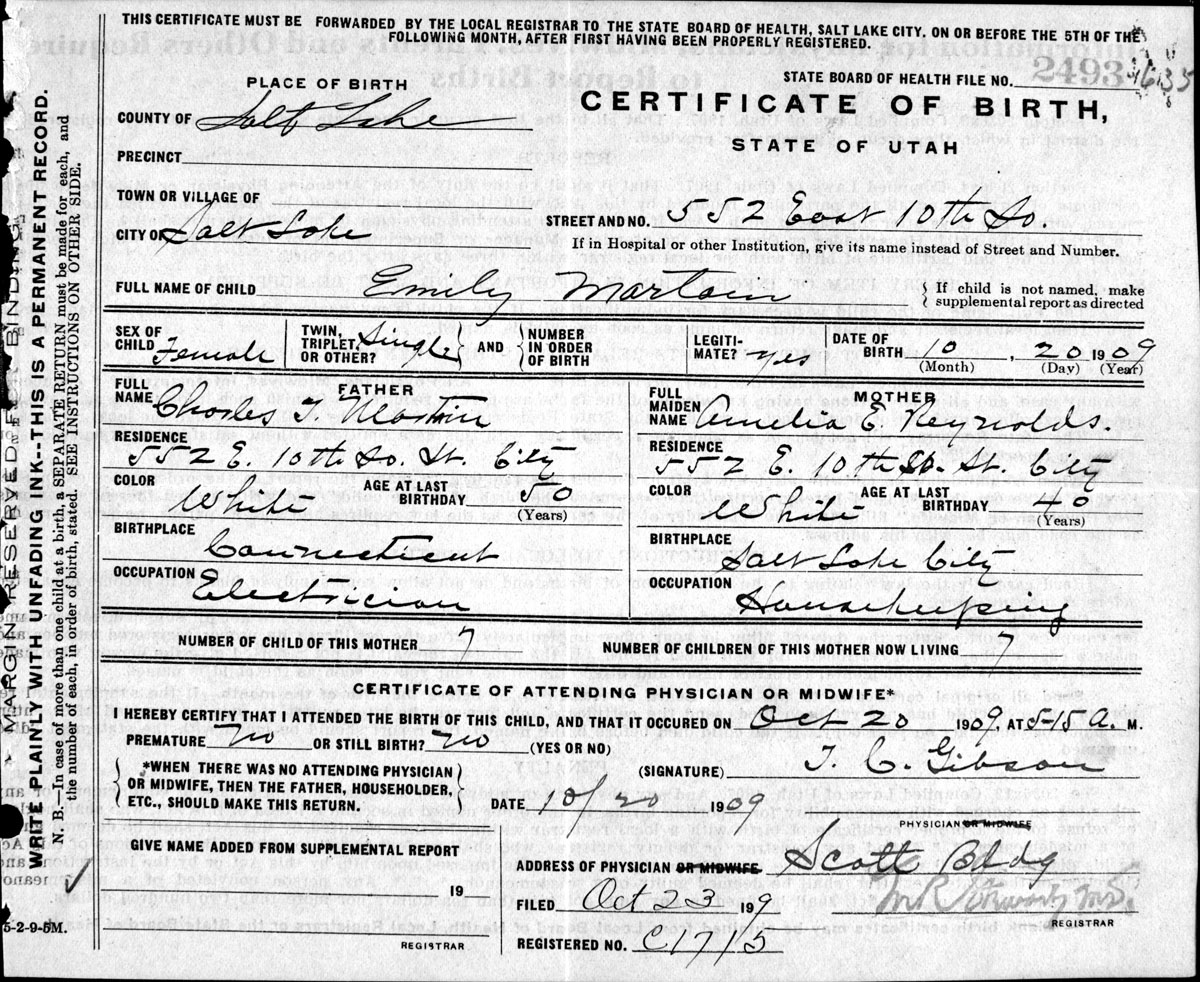 THIS CERTIFICATE MUST BE FORWARDED BY THE LOCAL REGISTRAR TO THE STATE BOARD OF HEALTH, SALT LAKE CITY, ON OR BEFORE THE 5TH OF THE
FOLLOWING MONTH, AFTER FIRST HAVING BEEN PROPERLY REGISTERED.
STATE BOARD OF HEALTH FILE NO. 2493
PLACE OF BIRTH
CERTIFICATE OF BIRTH,
COUNTY OF Salt Lake
STATE OF UTAH
PRECINCT
TOWN OR VILLAGE OF
STREET AND NO. 552 East 10th So.
CITY OF Salt Lake
If in Hospital or other Institution, give its name instead of Street and Number.
FULL NAME OF CHILD Emily
{ If child is not named, make
supplemental report as directed
SEX OF CHILD Female
TWIN, TRIPLET, OR OTHER? Single
} AND { NUMBER IN ORDER OF BIRTH
LEGITI-MATE? yes
DATE OF BIRTH 10, 20 1909
(Month) (Day) (Year)
FATHER
FULL NAME Charles T. Martin
RESIDENCE
552 E. 10th So. St. City
COLOR White
AGE AT LAST BIRTHDAY 50
(Years)
BIRTHPLACE
Connecticut
OCCUPATION
Electrician
MOTHER
FULL MAIDEN NAME Amelia E. Reynolds.
RESIDENCE
552 E. 10th So. St. City
COLOR White
AGE AT LAST BIRTHDAY 40
(Years)
BIRTHPLACE
Salt Lake City
OCCUPATION
Housekeeping
NUMBER OF CHILD OF THIS MOTHER 7
NUMBER OF CHILDREN OF THIS MOTHER NOW LIVING 7
CERTIFICATE OF ATTENDING PHYSICIAN OR MIDWIFE*
I HEREBY CERTIFY THAT I ATTENDED THE BIRTH OF THIS CHILD, AND THAT IT OCCURED ON Oct 20 1909, AT 5-15 A. M.
PREMATURE no OR STILL BIRTH? no (YES OR NO)
{ *WHEN THERE WAS NO ATTENDING PHYSICIAN
OR MIDWIFE, THEN THE FATHER, HOUSEHOLDER,
ETC., SHOULD MAKE THIS RETURN. }
(SIGNATURE) T. C. Gibson
DATE 10/20 1909
PHYSICIAN OR MIDWIFE
GIVE NAME ADDED FROM SUPPLEMENTAL REPORT
19
REGISTRAR
ADDRESS OF PHYSICIAN OR MIDWIFE Scott Bldg
FILED Oct 23 199
REGISTRAR
REGISTERED NO. C1715
5-2-9-5M.
MARGIN RESERVED FOR BINDING
WRITE PLAINLY WITH UNFADING INK--THIS IS A PERMANENT RECORD.
N. B.—In case of more than one child at a birth, a SEPARATE RETURN must be made for each, and
the number of each, in order of birth, stated. SEE INSTRUCTIONS ON OTHER SIDE.